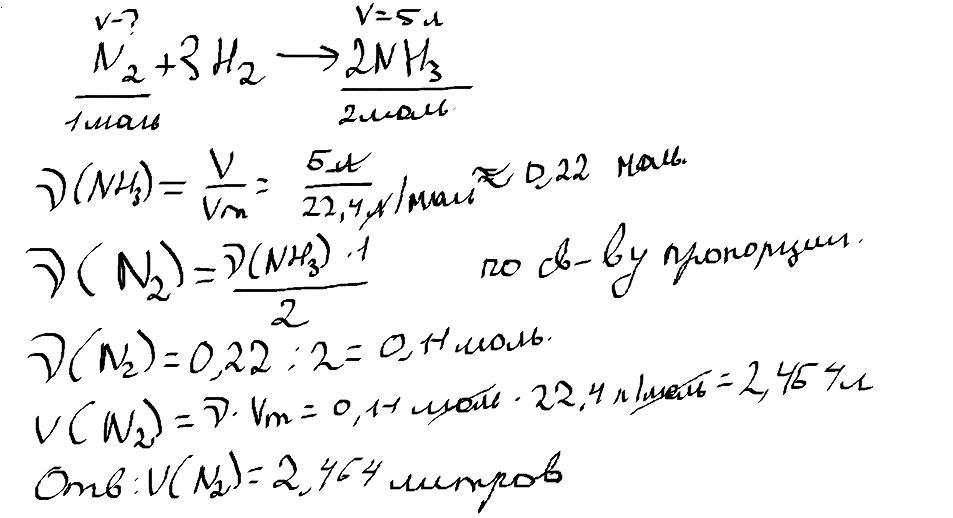 V-? V=5л
N₂+3H₂ → 2NH₃
1моль 2моль
ν(NH₃)= V/Vm = 5л/22,4л/моль ≈ 0,22 моль.
ν(N₂)= ν(NH₃)·1/2 по св-ву пропорции.
ν(N₂)=0,22:2=0,11моль.
V(N₂)=ν·Vm=0,11моль·22,4л/моль=2,464л
Отв:V(N₂)=2,464литров